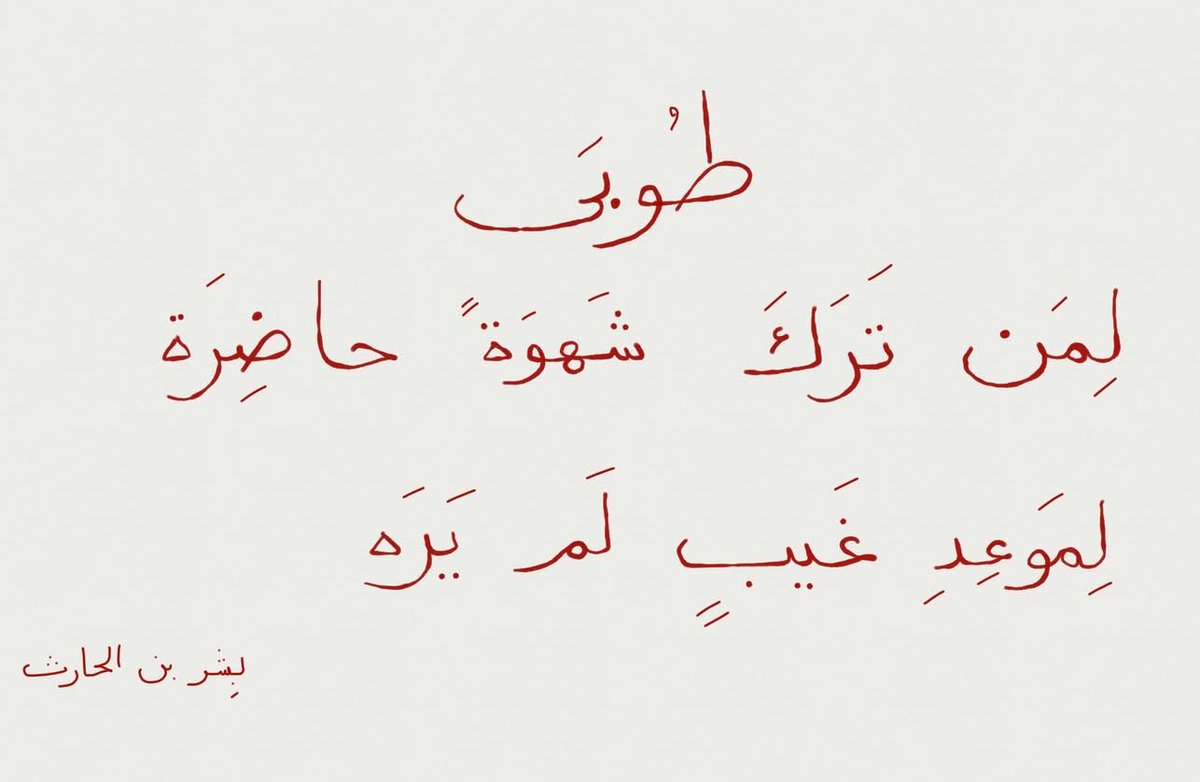 طُوبَى
لِمَن تَرَكَ شَهوَةً حاضِرَة
لِمَوعِدِ غَيبٍ لَم يَرَه
بِشر بن الحارث